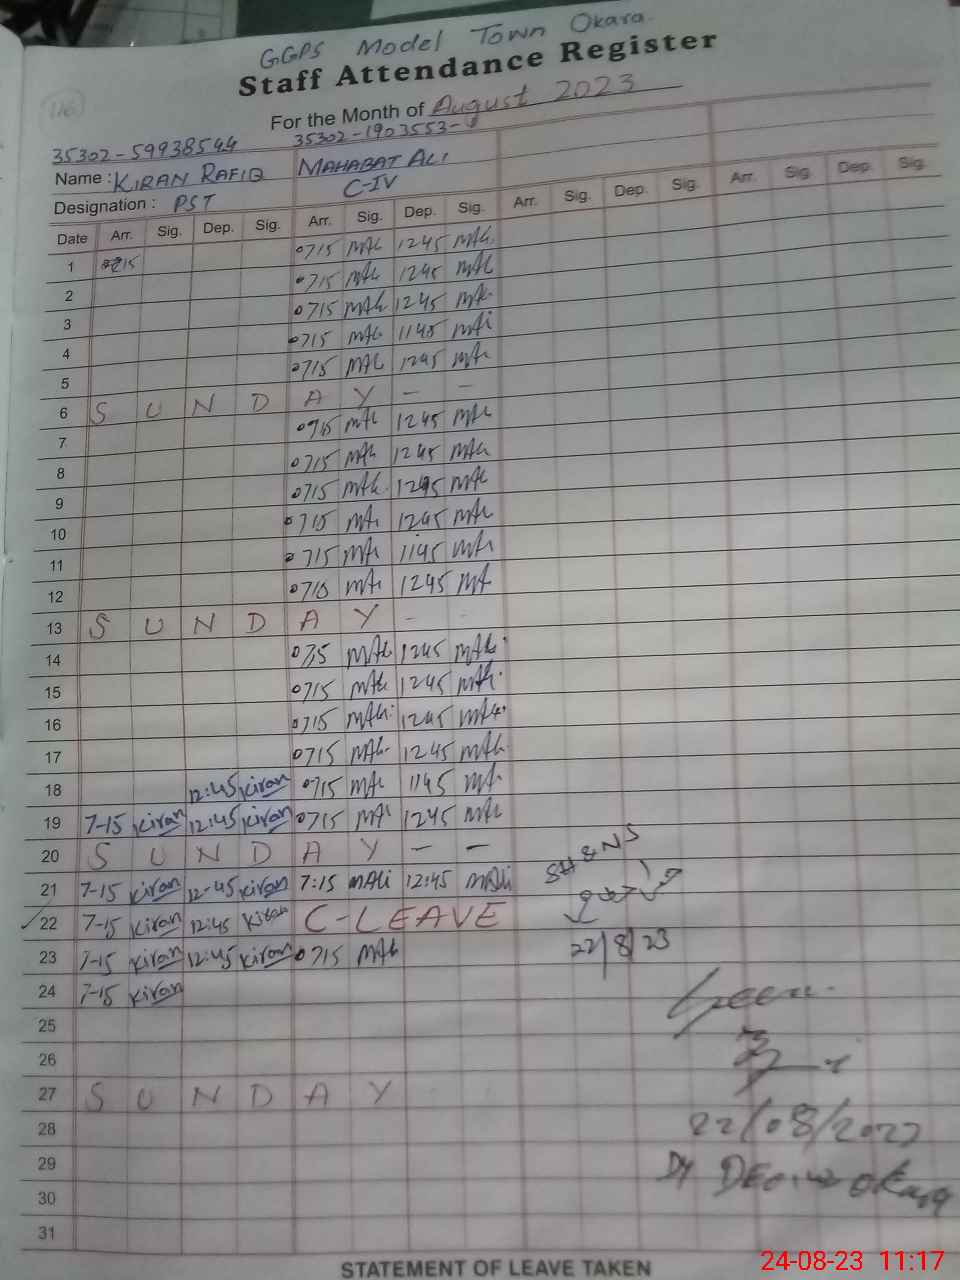 116
GGPS Model Town Okara.
Staff Attendance Register
For the Month of August 2023
35302-59938544 35302-1903553-
Name : KIRAN RAFIQ MAHABAT ALI
Designation : PST C-IV
Date Arr. Sig. Dep. Sig. Arr. Sig. Dep. Sig. Arr. Sig. Dep. Sig. Arr. Sig. Dep. Sig.
1 0715 MAli 1245 MAli
2 0715 MAli 1245 MAli
3 0715 MAli 1245 MAli
4 0715 MAli 1145 MAli
5 0715 MAli 1245 MAli
6 S U N D A Y — —
7 0715 MAli 1245 MAli
8 0715 MAli 1245 MAli
9 0715 MAli 1245 MAli
10 0715 MAli 1245 MAli
11 0715 MAli 1145 MAli
12 0710 MAli 1245 MAli
13 S U N D A Y - -
14 0715 MAli 1245 MAli
15 0715 MAli 1245 MAli
16 0715 MAli 1245 MAli
17 0715 MAli 1245 MAli
18 12:45 Kiran 0715 MAli 1145 MAli
19 7-15 Kiran 12:45 Kiran 0715 MAli 1245 MAli
20 S U N D A Y — —
21 7-15 Kiran 12-45 Kiran 7:15 MAli 12:45 MAli
22 7-15 Kiran 12:45 Kiran C-LEAVE
23 7-15 Kiran 12:45 Kiran 0715 MAli
24 7-15 Kiran
25
26
27 S U N D A Y
28
29
30
31
SH & NS
22/8/23
Seen.
22/08/2023
Dy DEO Okara
STATEMENT OF LEAVE TAKEN
24-08-23 11:17